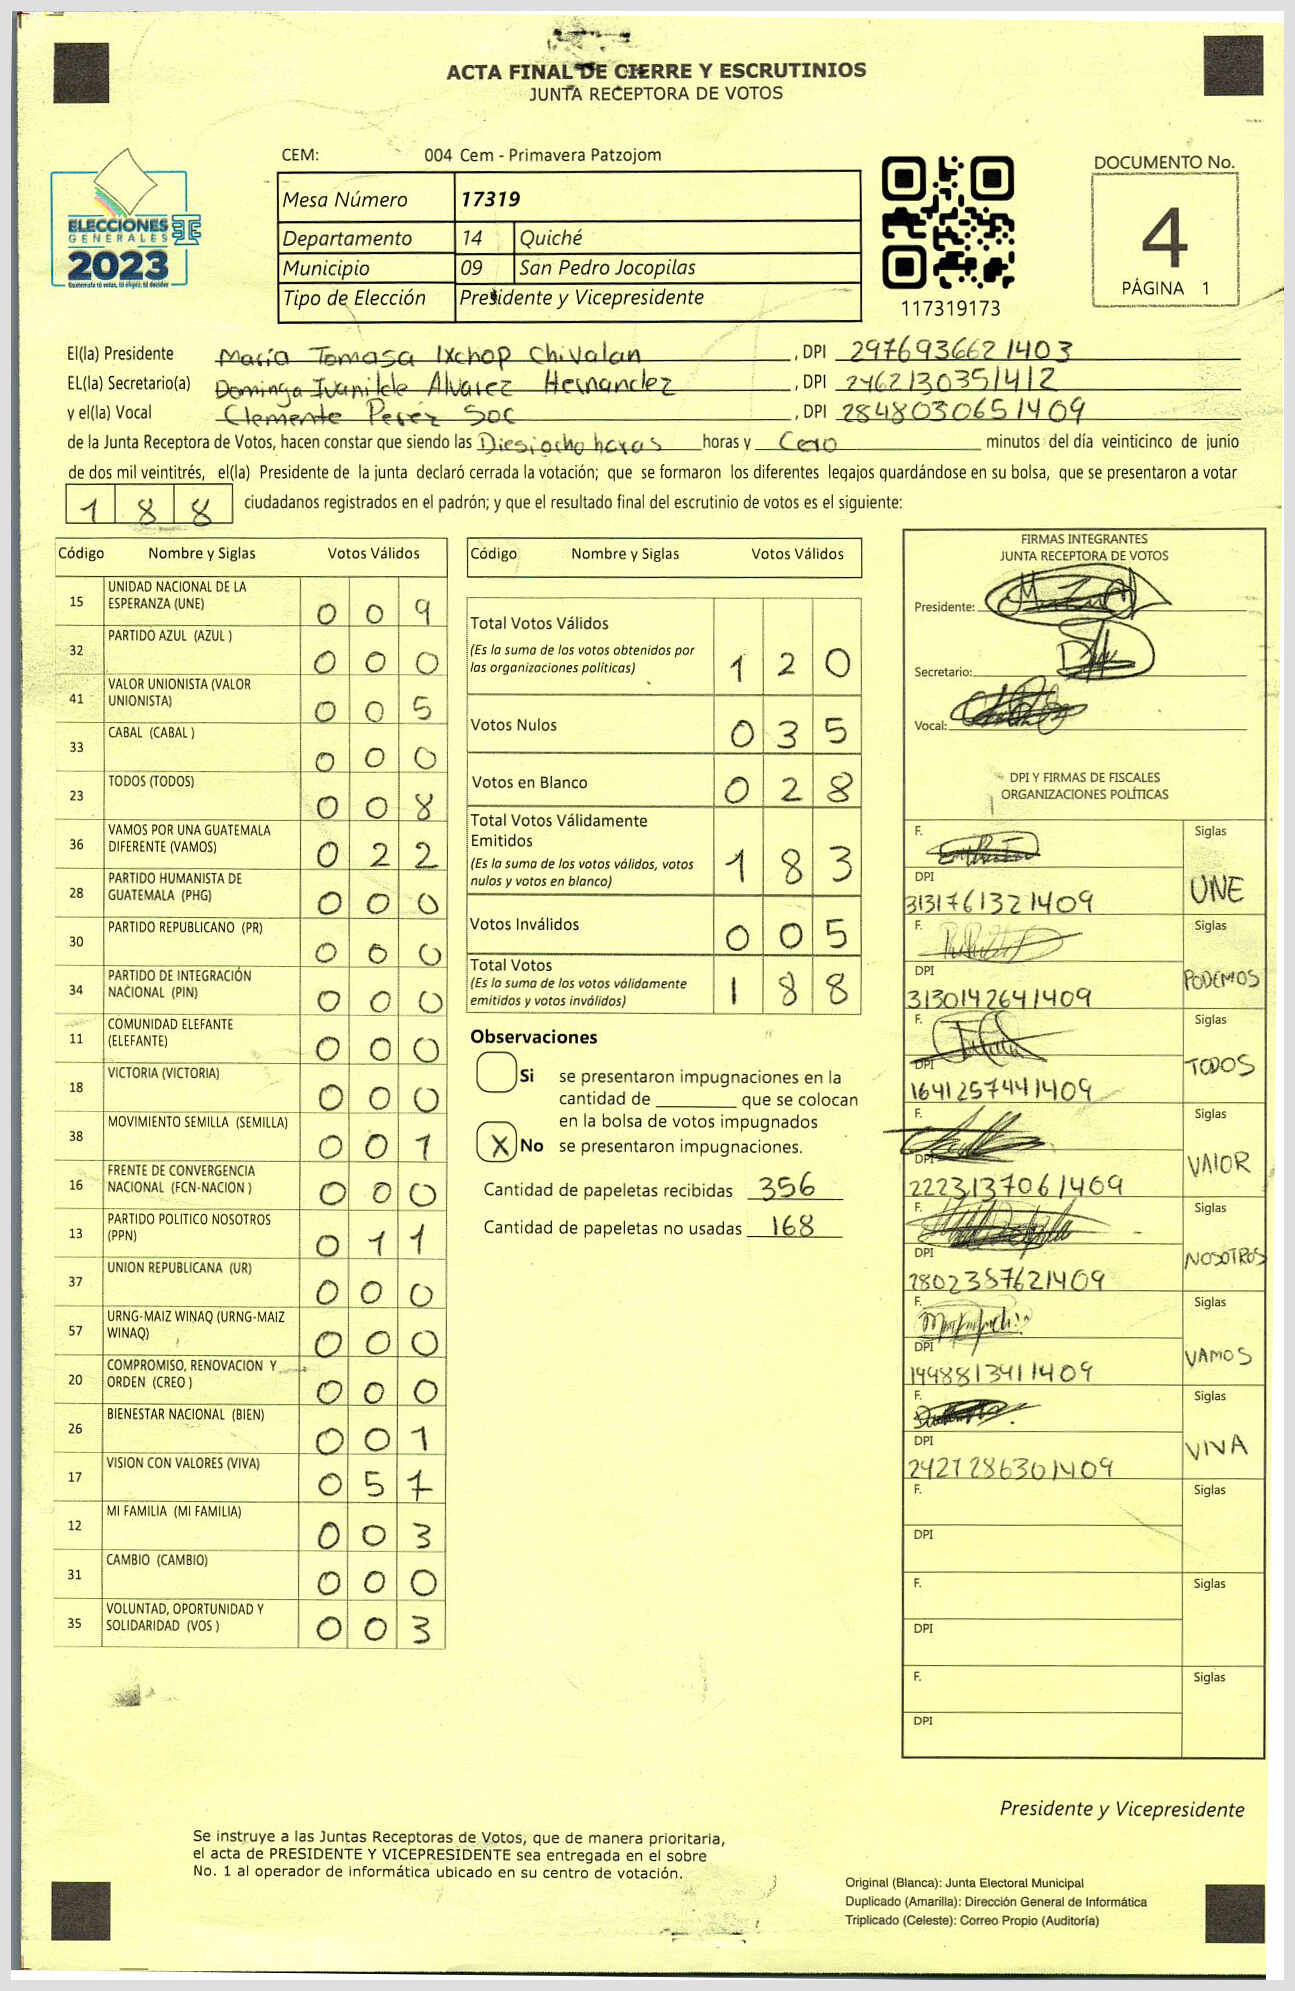 ACTA FINAL DE CIERRE Y ESCRUTINIOS
JUNTA RECEPTORA DE VOTOS
CEM: 004 Cem - Primavera Patzojom
Mesa Número 17319
Departamento 14 Quiché
Municipio 09 San Pedro Jocopilas
Tipo de Elección Presidente y Vicepresidente
ELECCIONES
GENERALES
2023
Guatemala tú votas, tú eliges, tú decides
117319173
DOCUMENTO No.
4
PÁGINA 1
El(la) Presidente María Tomasa Ixchop Chivalan , DPI 2976936621403
EL(la) Secretario(a) Dominga Ivanilde Alvarez Hernandez , DPI 2462130351412
y el(la) Vocal Clemente Peréz Soc , DPI 2848030651409
de la Junta Receptora de Votos, hacen constar que siendo las Diesiocho horas horas y Cero minutos del día veinticinco de junio
de dos mil veintitrés, el(la) Presidente de la junta declaró cerrada la votación; que se formaron los diferentes legajos quardándose en su bolsa, que se presentaron a votar
188 ciudadanos registrados en el padrón; y que el resultado final del escrutinio de votos es el siguiente:
Código Nombre y Siglas Votos Válidos
15 UNIDAD NACIONAL DE LA
ESPERANZA (UNE) 0 0 9
32 PARTIDO AZUL (AZUL ) 0 0 0
41 VALOR UNIONISTA (VALOR
UNIONISTA) 0 0 5
33 CABAL (CABAL ) 0 0 0
23 TODOS (TODOS) 0 0 8
36 VAMOS POR UNA GUATEMALA
DIFERENTE (VAMOS) 0 2 2
28 PARTIDO HUMANISTA DE
GUATEMALA (PHG) 0 0 0
30 PARTIDO REPUBLICANO (PR) 0 0 0
34 PARTIDO DE INTEGRACIÓN
NACIONAL (PIN) 0 0 0
11 COMUNIDAD ELEFANTE
(ELEFANTE) 0 0 0
18 VICTORIA (VICTORIA) 0 0 0
38 MOVIMIENTO SEMILLA (SEMILLA) 0 0 1
16 FRENTE DE CONVERGENCIA
NACIONAL (FCN-NACION ) 0 0 0
13 PARTIDO POLITICO NOSOTROS
(PPN) 0 1 1
37 UNION REPUBLICANA (UR) 0 0 0
57 URNG-MAIZ WINAQ (URNG-MAIZ
WINAQ) 0 0 0
20 COMPROMISO, RENOVACION Y
ORDEN (CREO ) 0 0 0
26 BIENESTAR NACIONAL (BIEN) 0 0 1
17 VISION CON VALORES (VIVA) 0 5 7
12 MI FAMILIA (MI FAMILIA) 0 0 3
31 CAMBIO (CAMBIO) 0 0 0
35 VOLUNTAD, OPORTUNIDAD Y
SOLIDARIDAD (VOS ) 0 0 3
Código Nombre y Siglas Votos Válidos
Total Votos Válidos
(Es la suma de los votos obtenidos por
las organizaciones políticas) 1 2 0
Votos Nulos 0 3 5
Votos en Blanco 0 2 8
Total Votos Válidamente
Emitidos
(Es la suma de los votos válidos, votos
nulos y votos en blanco) 1 8 3
Votos Inválidos 0 0 5
Total Votos
(Es la suma de los votos válidamente
emitidos y votos inválidos) 1 8 8
Observaciones
Si se presentaron impugnaciones en la
cantidad de ________ que se colocan
en la bolsa de votos impugnados
X No se presentaron impugnaciones.
Cantidad de papeletas recibidas 356
Cantidad de papeletas no usadas 168
FIRMAS INTEGRANTES
JUNTA RECEPTORA DE VOTOS
Presidente:
Secretario:
Vocal:
DPI Y FIRMAS DE FISCALES
ORGANIZACIONES POLÍTICAS
F. Siglas
DPI UNE
3131761321409
F. Siglas
DPI PODEMOS
3130142641409
F. Siglas
DPI TODOS
1641257441409
F. Siglas
DPI VALOR
2223137061409
F. Siglas
DPI NOSOTROS
2802387621409
F. Siglas
DPI VAMOS
1998813411409
F. Siglas
DPI VIVA
2427286301409
F. Siglas
DPI
F. Siglas
DPI
F. Siglas
DPI
Presidente y Vicepresidente
Se instruye a las Juntas Receptoras de Votos, que de manera prioritaria,
el acta de PRESIDENTE Y VICEPRESIDENTE sea entregada en el sobre
No. 1 al operador de informática ubicado en su centro de votación.
Original (Blanca): Junta Electoral Municipal
Duplicado (Amarilla): Dirección General de Informática
Triplicado (Celeste): Correo Propio (Auditoría)